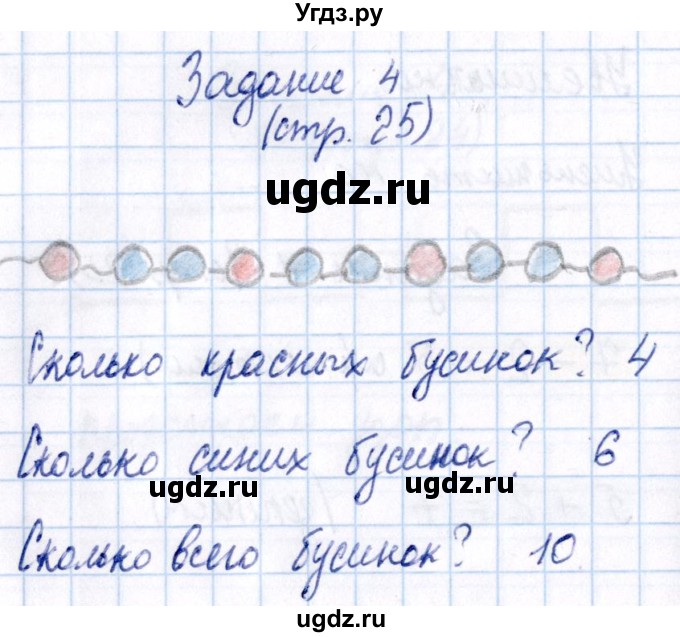 Угдз.ру
Задание 4
(стр. 25)
ugdz.ru
Сколько красных бусинок? 4
Сколько синих бусинок? 6
ugdz.ru
ugdz.ru
Сколько всего бусинок? 10
ugdz.ru
ugdz.ru